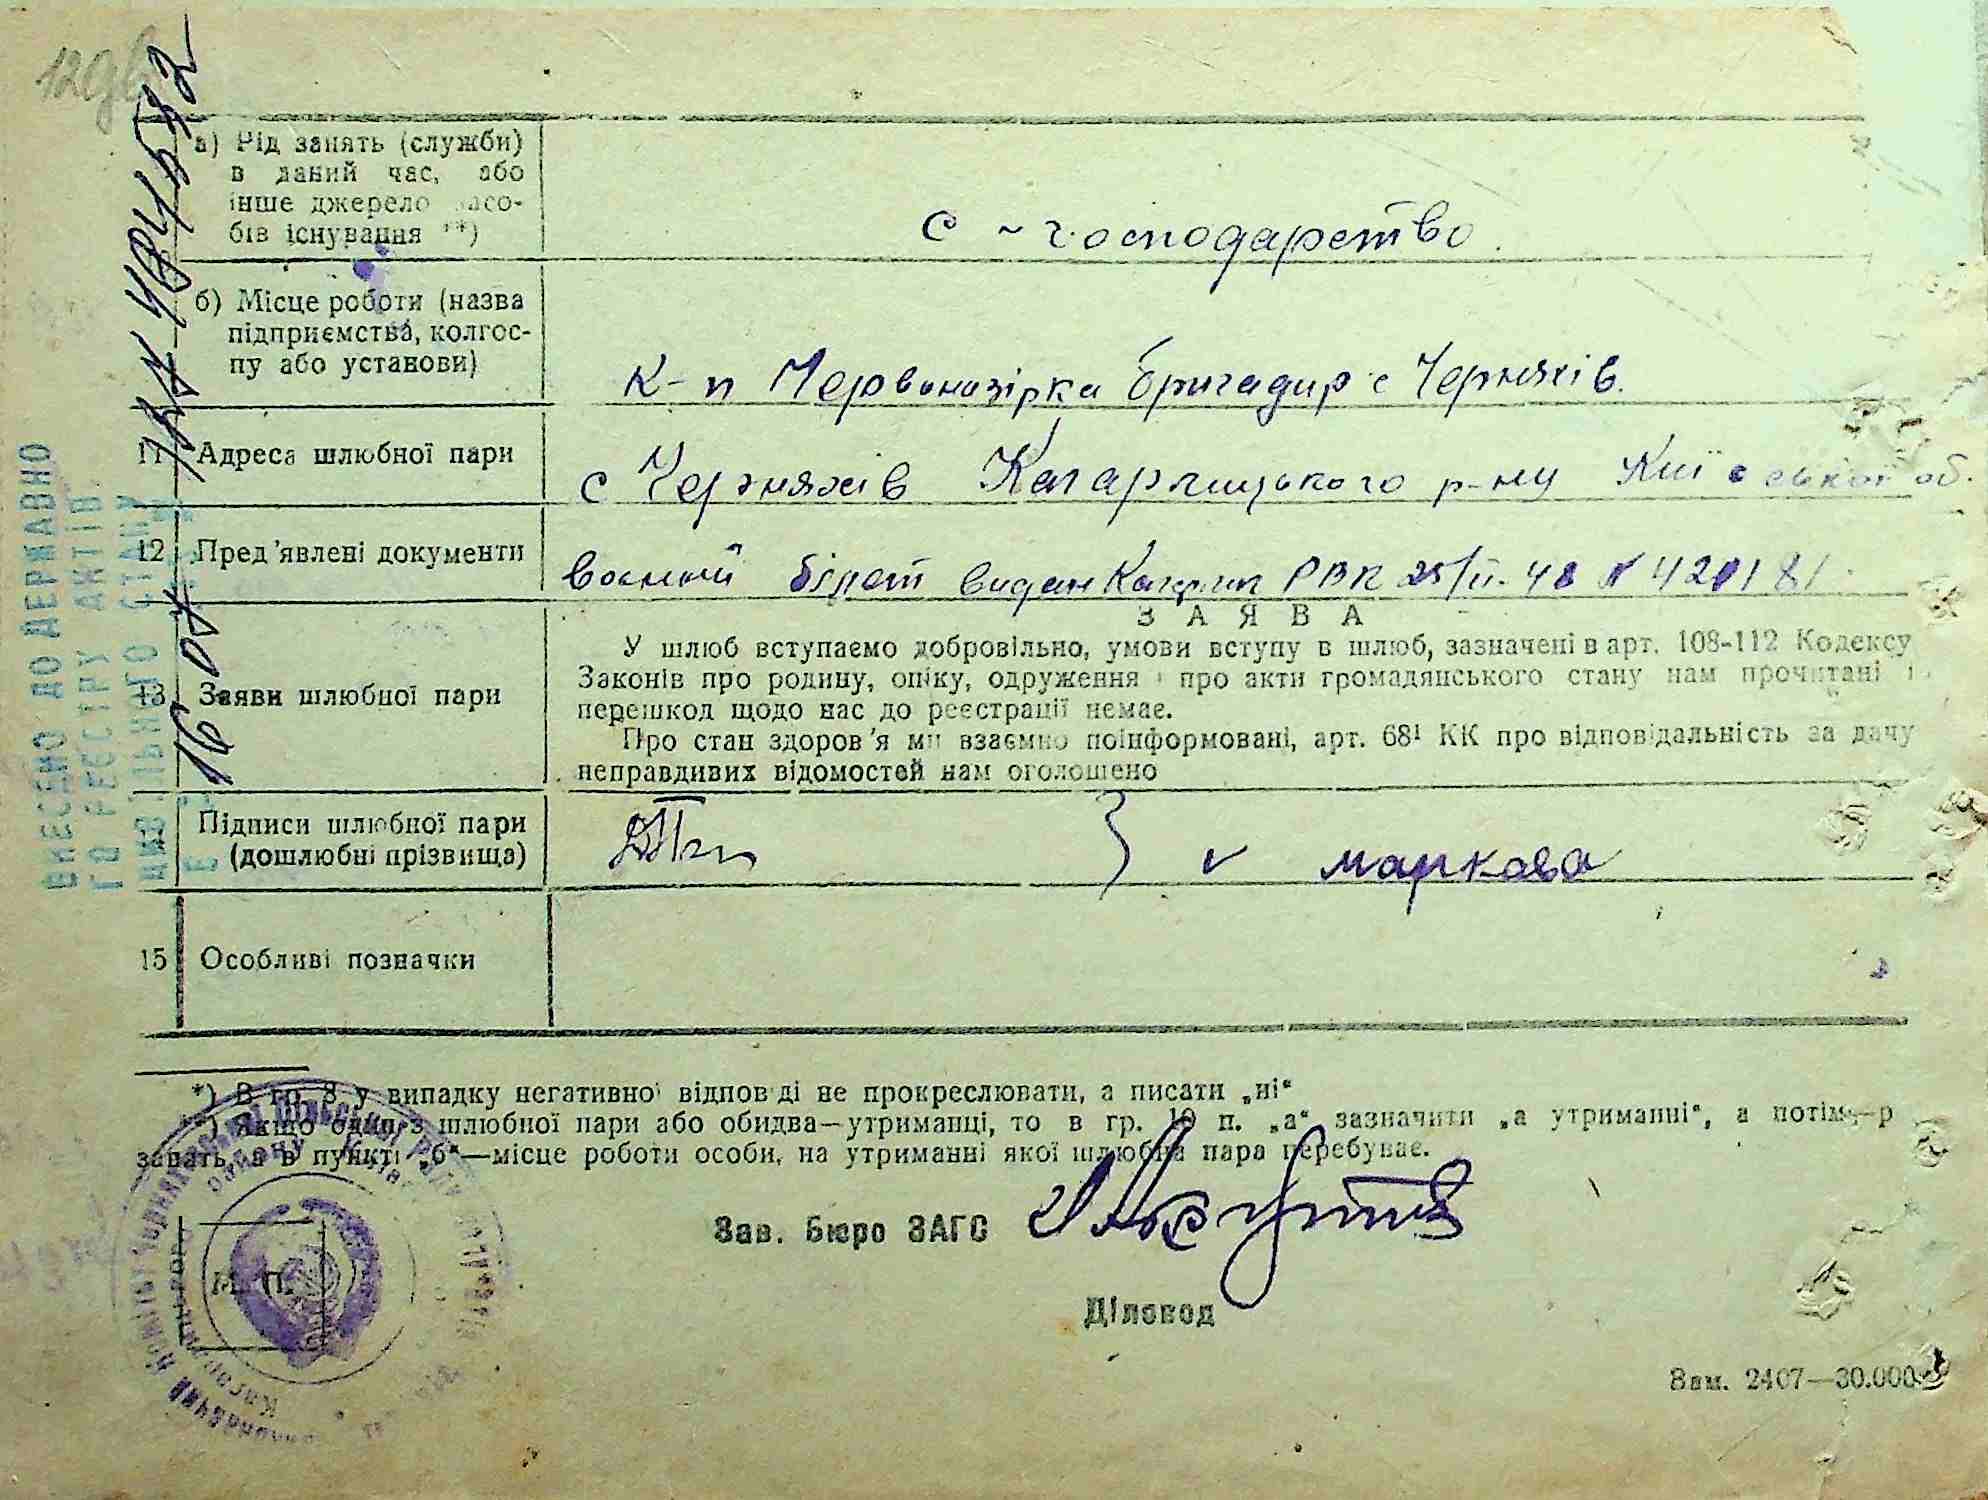 а) Рід занять (служби)
в даний час, або
інше джерело засо-
бів існування **)
с - господарство
б) Місце роботи (назва
підприємства, колгос-
пу або установи)
к-п Червоназірка бригадир с Черняхів.
11 Адреса шлюбної пари
с Черняхів Кагарлицького р-ну Київської об.
12 Пред'явлені документи
воєнний білет видан РВК 25/II-48 N
ЗАЯВА
У шлюб вступаємо добровільно, умови вступу в шлюб, зазначені в арт. 108-112 Кодексу
Законів про родину, опіку, одруження і про акти громадянського стану нам прочитані і
перешкод щодо нас до реєстрації немає.
Про стан здоров'я ми взаємно поінформовані, арт. 68¹ КК про відповідальність за дачу
неправдивих відомостей нам оголошено
13 Заяви шлюбної пари
Підписи шлюбної пари
(дошлюбні прізвища)
маркова
15 Особливі позначки
*) В гр. 8 у випадку негативної відповіді не прокреслювати, а писати „ні“
**) Якщо один з шлюбної пари або обидва—утриманці, то в гр. 10 п. „а“ зазначити „а утриманні“, а потім—р
занять, а в пункті „б“—місце роботи особи, на утриманні якої шлюбна пара перебуває.
Зав. Бюро ЗАГС
М. П.
Діловод
Зам. 2407—30.000
ВНЕСЕНО ДО ДЕРЖАВНО
ГО РЕЄСТРУ АКТІВ
ЦИВІЛЬНОГО СТАНУ